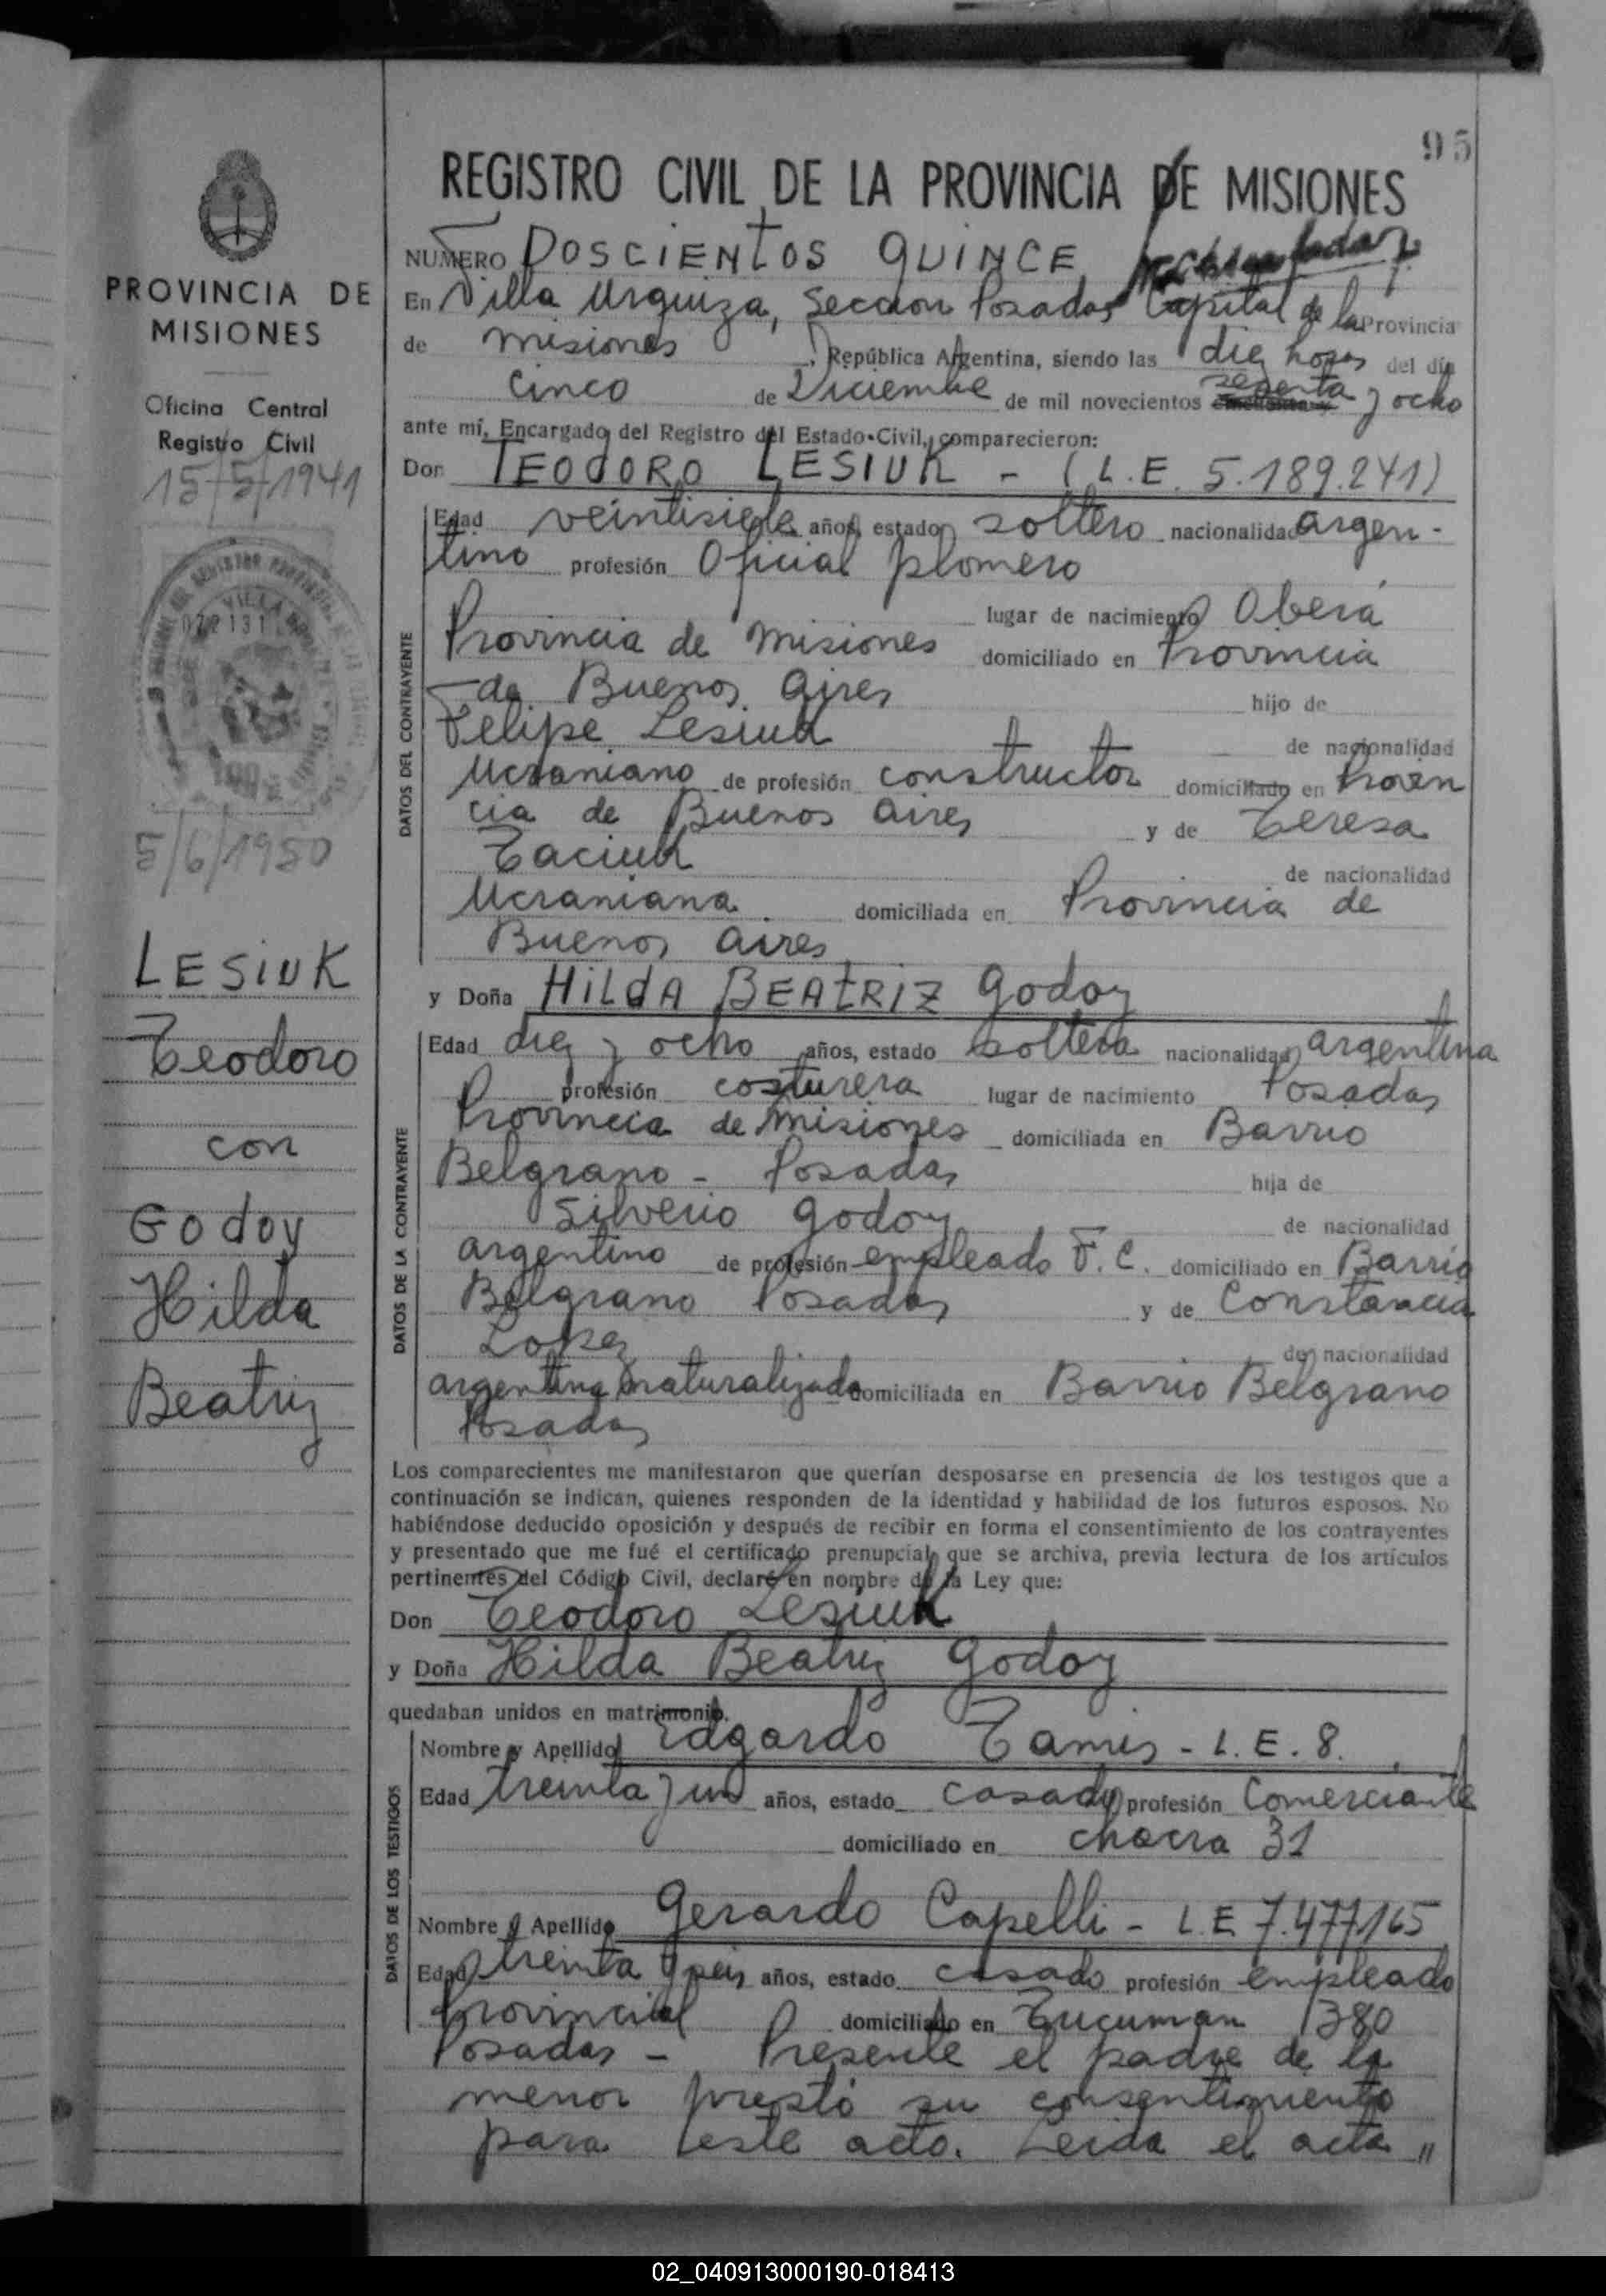 95
REGISTRO CIVIL DE LA PROVINCIA DE MISIONES
NUMERO DOSCIENTOS QUINCE
En Villa Urquiza, Seccion Posadas Capital de la Provincia
de Misiones, República Argentina, siendo las diez horas del día
cinco de Diciembre de mil novecientos sesenta y ocho
ante mí, Encargado del Registro del Estado Civil, comparecieron:
Don TEODORO LESIUK - (L.E. 5.189.241)
Edad veintisiete años, estado soltero nacionalidad argen-
tino profesión Oficial plomero
lugar de nacimiento Oberá
Provincia de Misiones domiciliado en Provincia
de Buenos Aires hijo de
Felipe Lesiuk de nacionalidad
Ucraniano de profesión constructor domiciliado en Provin
cia de Buenos Aires y de Teresa
Taciuk de nacionalidad
Ucraniana domiciliada en Provincia de
Buenos Aires
y Doña HILDA BEATRIZ Godoy
Edad diez y ocho años, estado soltera nacionalidad argentina
profesión costurera lugar de nacimiento Posadas
Provincia de Misiones domiciliada en Barrio
Belgrano - Posadas hija de
Silverio Godoy de nacionalidad
argentino de profesión empleado F.C. domiciliado en Barrio
Belgrano Posadas y de Constancia
Lopez de nacionalidad
argentina naturalizada domiciliada en Barrio Belgrano
Posadas
Los comparecientes me manifestaron que querían desposarse en presencia de los testigos que a
continuación se indican, quienes responden de la identidad y habilidad de los futuros esposos. No
habiéndose deducido oposición y después de recibir en forma el consentimiento de los contrayentes
y presentado que me fué el certificado prenupcial, que se archiva, previa lectura de los artículos
pertinentes del Código Civil, declaré en nombre de la Ley que:
Don Teodoro Lesiuk
y Doña Hilda Beatriz Godoy
quedaban unidos en matrimonio.
Nombre y Apellido Edgardo Tamis - L.E. 8.
Edad treinta y un años, estado casado profesión Comerciante
domiciliado en chacra 31
Nombre y Apellido Gerardo Capelli - L.E 7.477.165
Edad treinta y seis años, estado casado profesión empleado
Provincial domiciliado en Tucuman 1380
Posadas - Presente el padre de la
menor prestó su consentimiento
para este acto. Leida el acta "
DATOS DEL CONTRAYENTE
DATOS DE LA CONTRAYENTE
DATOS DE LOS TESTIGOS
PROVINCIA DE
MISIONES
Oficina Central
Registro Civil
15/5/1941
5/6/1950
LESIUK
Teodoro
con
Godoy
Hilda
Beatriz
02_040913000190-018413